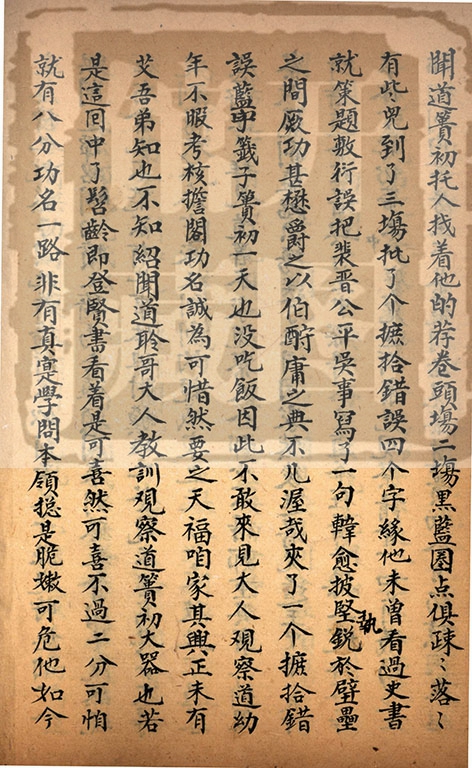 聞道簣初托人找着他的荐卷頭塲二塲黒藍圏点俱疎〻落〻
有些兒到了三塲批了个摭拾錯誤四个字緣他未曽看過史書
就策題敷衍誤把裴晋公平吳事寫了一句韓愈披堅執鋭於壁壘
之間厥功甚懋爵之以伯酧庸之典不几渥哉夾了一个摭拾錯
誤藍字籖子簣初一天也没吃飯因此不敢來見大人觀察道幼
年不暇考核擔閣功名誠為可惜然要之天福咱家其興正未有
艾吾弟知也不知紹聞道聆哥大人教訓觀察道簣初大器也若
是這回中了髫齡即登賢書看着是可喜然可喜不過二分可怕
就有八分功名一路非有真寔學問本領捴是脆嫩可危他如今